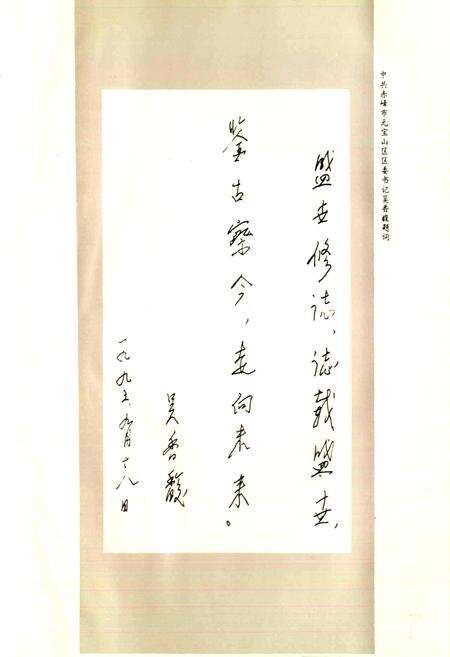 中共赤峰市元宝山区区委书记吴香馥题词
盛世修誌，誌载盛世，
鉴古察今，走向未来。
吴香馥
一九九五、九月十八日